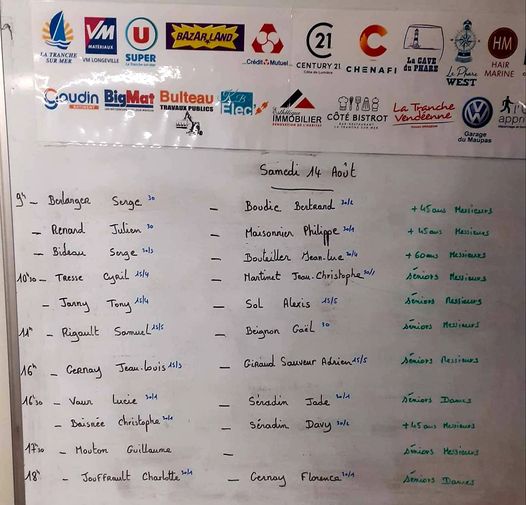 LA TRANCHE SUR MER
VM MATÉRIAUX
VM LONGEVILLE
U
SUPER
BAZARLAND
Crédit Mutuel
C21
CENTURY 21
Côte de Lumière
CHENAFI
LA CAVE DU PHARE
Le Phare WEST
HM
HAIR MARINE
Goudin
BigMat
Bulteau
TRAVAUX PUBLICS
KB Elec
Esthétique IMMOBILIER
RENOVATION DE L'HABITAT
CÔTÉ BISTROT
BAR RESTAURANT
LA TRANCHE SUR MER
La Tranche Vendéenne
Garage du Maupas
Samedi 14 Août
9h - Berlanger Serge 30 - Boudic Bertrand 30/2 +45ans Messieurs
- Renard Julien 30 - Maisonnier Philippe 30/1 +45ans Messieurs
- Bideau Serge 30/3 - Bouteiller Jean-Luc 30/4 +60ans Messieurs
10h30 - Tresse Cyril 15/4 - Martinet Jean-Christophe 30/1 séniors Messieurs
- Jarny Tony 15/4 - Sol Alexis 15/5 séniors Messieurs
11h - Rigault Samuel 15/5 - Beignon Gaël 30 séniors Messieurs
16h - Gernay Jean-Louis 15/5 - Giraud Sauveur Adrien 15/5 séniors Messieurs
16h30 - Vaur Lucie 30/1 - Séradin Jade 30/2 séniors Dames
- Boisnée Christophe 30/1 - Séradin Davy 30/2 +45ans Messieurs
17h30 - Mouton Guillaume - séniors Messieurs
18h - Jouffrault Charlotte 30/1 - Gernay Florence 30/1 séniors Dames